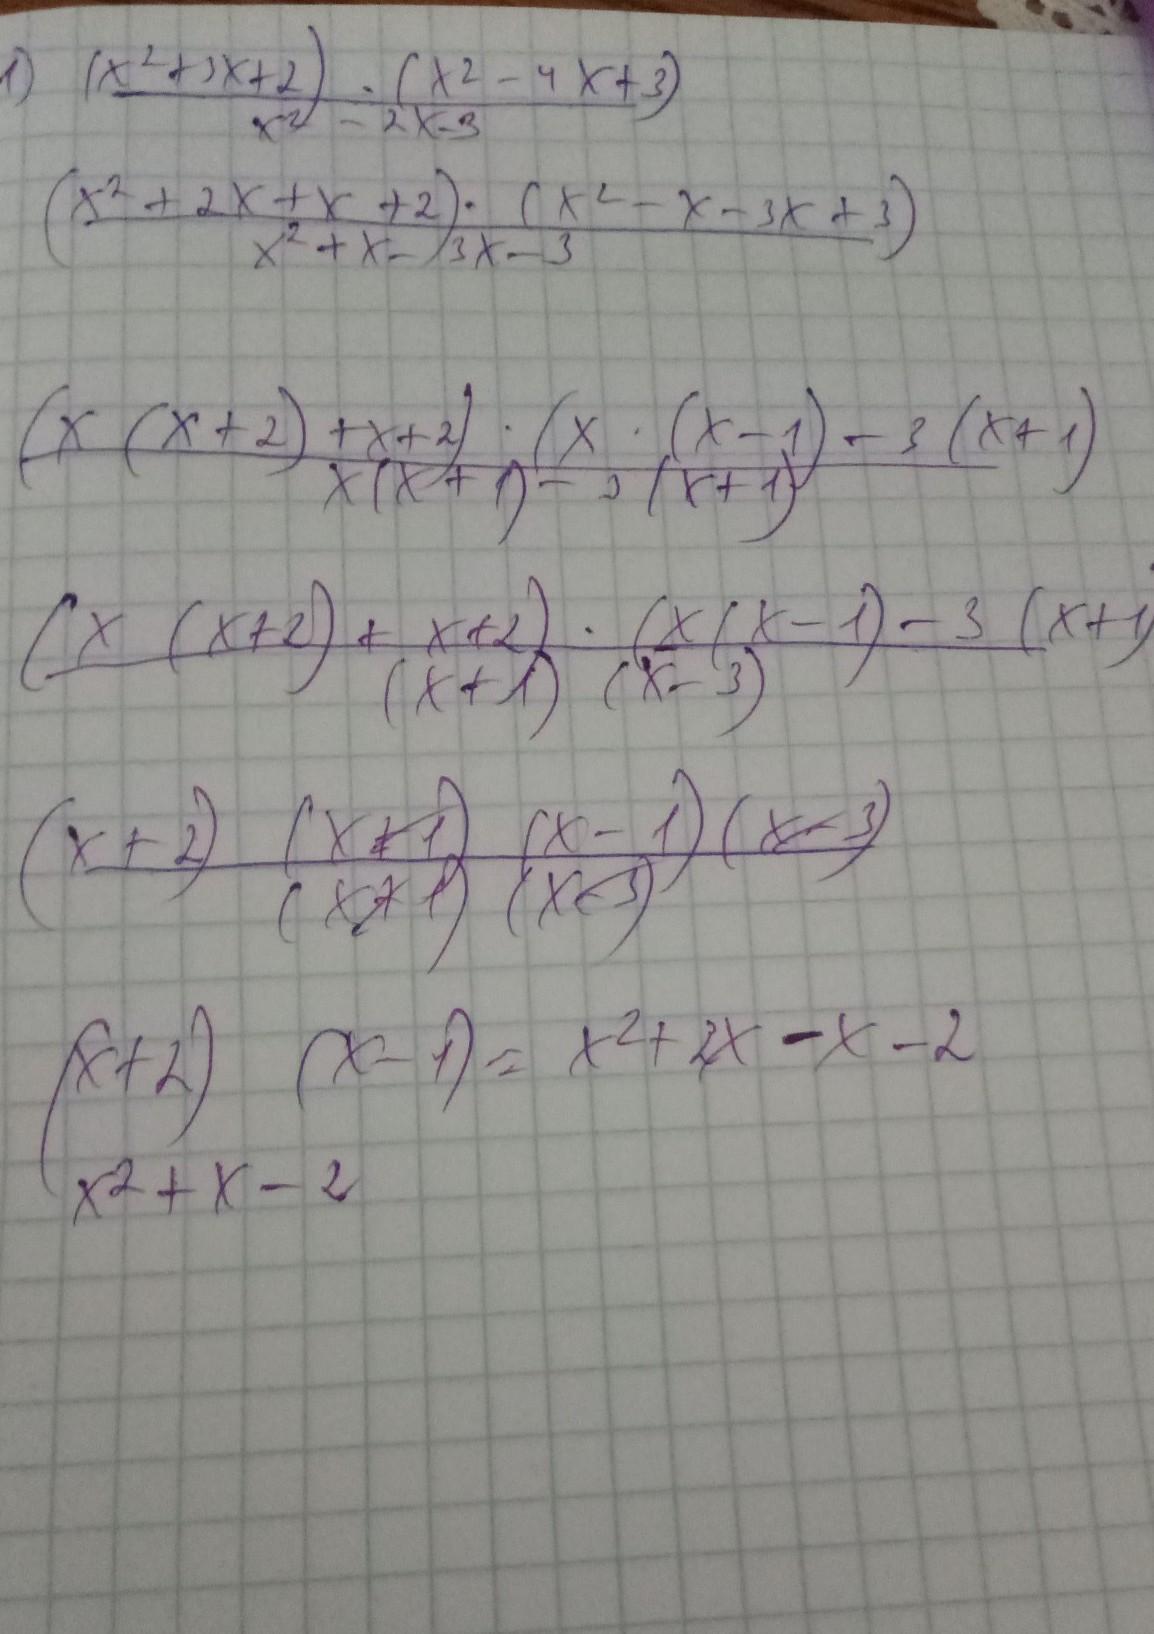 1) (x²+3x+2) · (x² - 4x+3)
x² - 2x-3
(x² + 2x + x + 2) · (x² - x - 3x + 3)
x² + x - 3x - 3
(x (x+2) + x+2) · (x · (x-1) - 3 (x+1)
x(x+1) - 3 (x+1)
(x (x+2) + x+2) · (x(x-1) - 3 (x+1)
(x+1) (x-3)
(x+2) (x+1) (x-1) (x-3)
(x+1) (x-3)
(x+2) (x-1) = x²+2x - x - 2
x² + x - 2